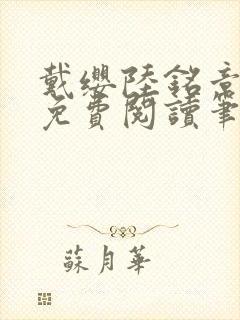 戴纓陸銘章
免費閱讀筆
蘇月華